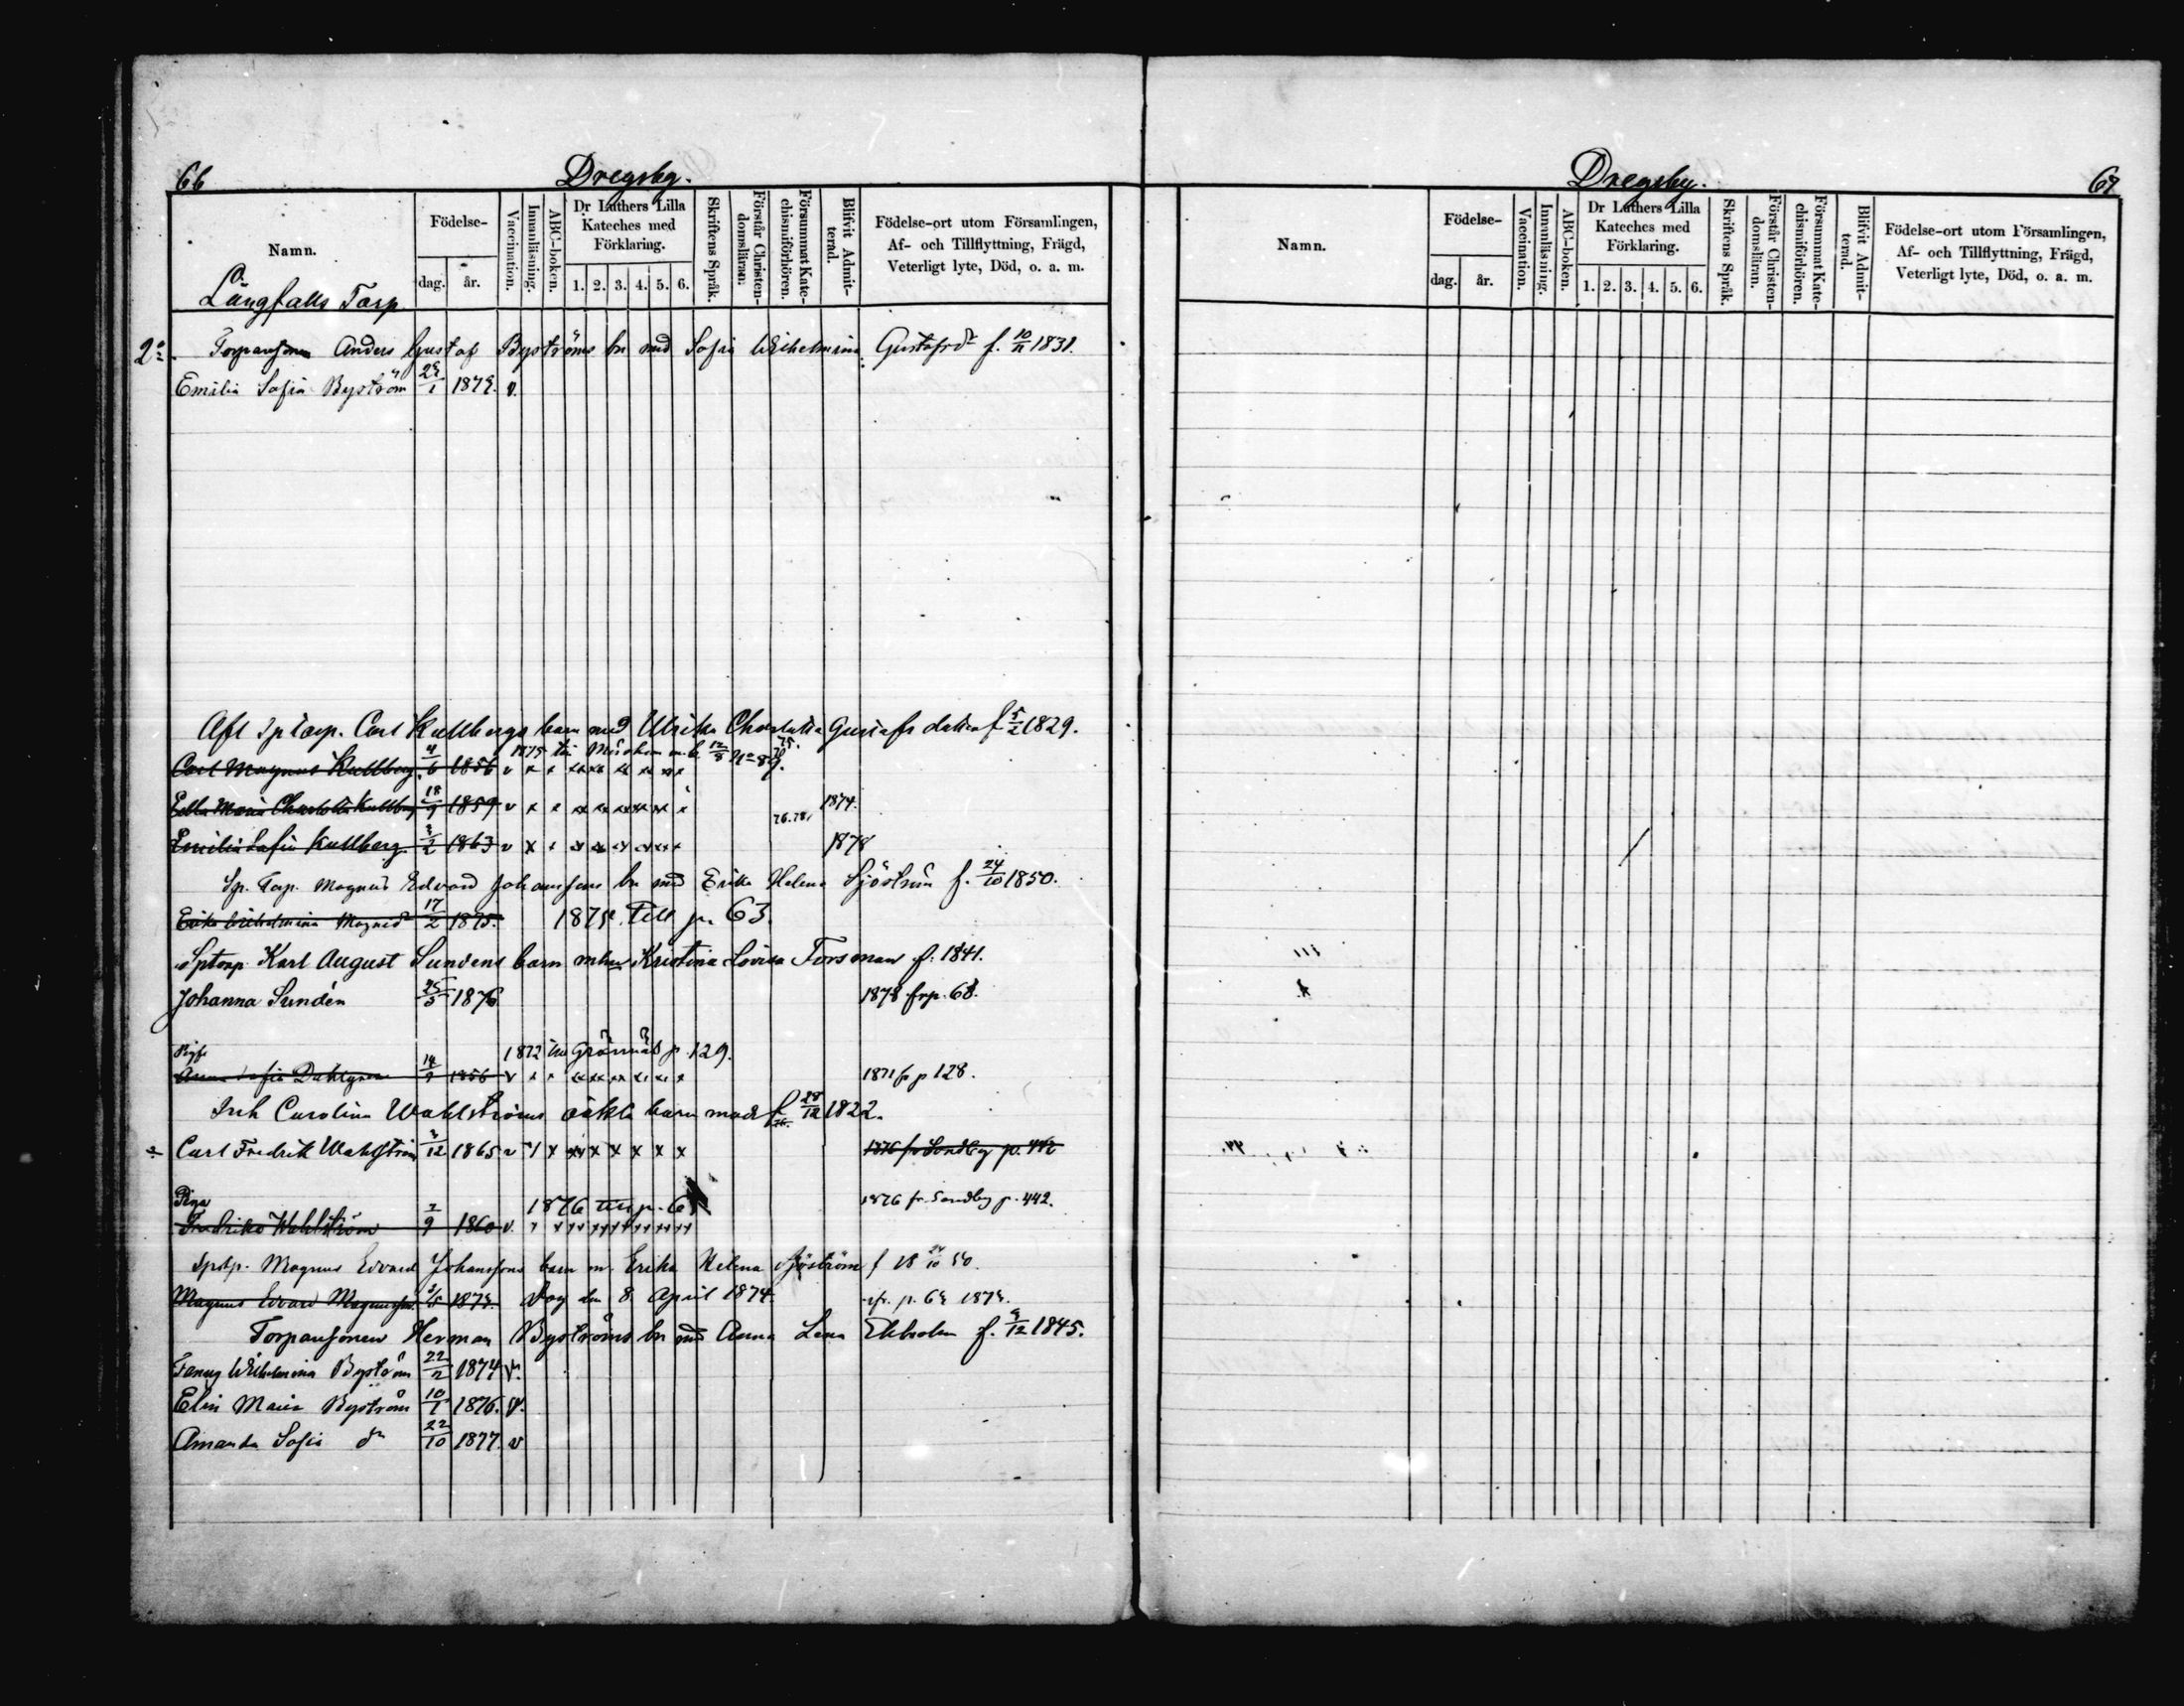 66
Dregsby.
Namn.
Födelse-
dag.
år.
Vaccination.
Innanläsning.
ABC-boken.
Dr Luthers Lilla
Kateches med
Förklaring.
1. 2. 3. 4. 5. 6.
Skriftens Språk.
Förstår Christen-
domsläran.
Försummat Kate-
chismiförhören.
Blifvit Admit-
terad.
Födelse-ort utom Församlingen,
Af- och Tillflyttning, Frägd,
Veterligt lyte, Död, o. a. m.
Långfalls Torp
2
Torparsonen Anders Gustaf Byströms bn med Sofia Wilhelmina Gustafsdr f. 10/11 1831.
Emilia Sofia Byström 1875. v.
Afl Sptorp. Carl Kullbergs barn med Ulrika Charlotta Gustafs dotter f 5/2 1829.
1875 12/8 75.
Carl Magnus Kullberg 4/6 1856 v x x xx xx xx xx xx x
Edla Maria Charlotta Kullberg 18/9 1859 v x x xx xx xx xx xx x 76.78. 1874.
Emilia Sofia Kullberg 3/2 1863 v x x xx xx xx xx x x 1878
Sp. Torp. Magnus Edvard Johanssons bn med Erika Helena Sjöström f. 24/10 1850.
Erika Wilhelmina Magnidr 17/2 1875. 1875. Till p. 63.
Sptorp. Karl August Sundens barn mhu Kristina Lovisa Forsman f. 1841.
Johanna Sundén 25/5 1876 1878 frp. 68.
Piga 1872 till p. 129.
Anna Sofia Dahlgren 14/9 1856 v x x xx xx xx xx x x 1871 fr p 128.
Inh Carolina Wahlströms oäkta barn mod f 28/12 1822.
Carl Fredrik Wahlström 3/12 1865 v x xx x x x x x 1876 fr Sandby p. 442
Piga 1876 till p. 1876 fr. Sandby p. 442.
Fredrika Wahlström 2/9 1860 v. x x x x x x x x x x x
Sptp. Magnus Edvard Johanssons barn m. Erika Helena Sjöström f 18 24/10 50.
Magnus Edvard Magnusson 1873. Dog den 8 April 1874. 1873.
Torparsonen Herman Byströms bn med Anna Lena Ekholm f. 1845.
Fanny Wilhelmina Byström 22/2 1874 v.
Elin Maria Byström 10/1 1876. v.
Amanda Sofia dn 22/10 1877. v
Dregsby.
67
Namn.
Födelse-
dag.
år.
Vaccination.
Innanläsning.
ABC-boken.
Dr Luthers Lilla
Kateches med
Förklaring.
1. 2. 3. 4. 5. 6.
Skriftens Språk.
Förstår Christen-
domsläran.
Försummat Kate-
chismiförhören.
Blifvit Admit-
terad.
Födelse-ort utom Församlingen,
Af- och Tillflyttning, Frägd,
Veterligt lyte, Död, o. a. m.